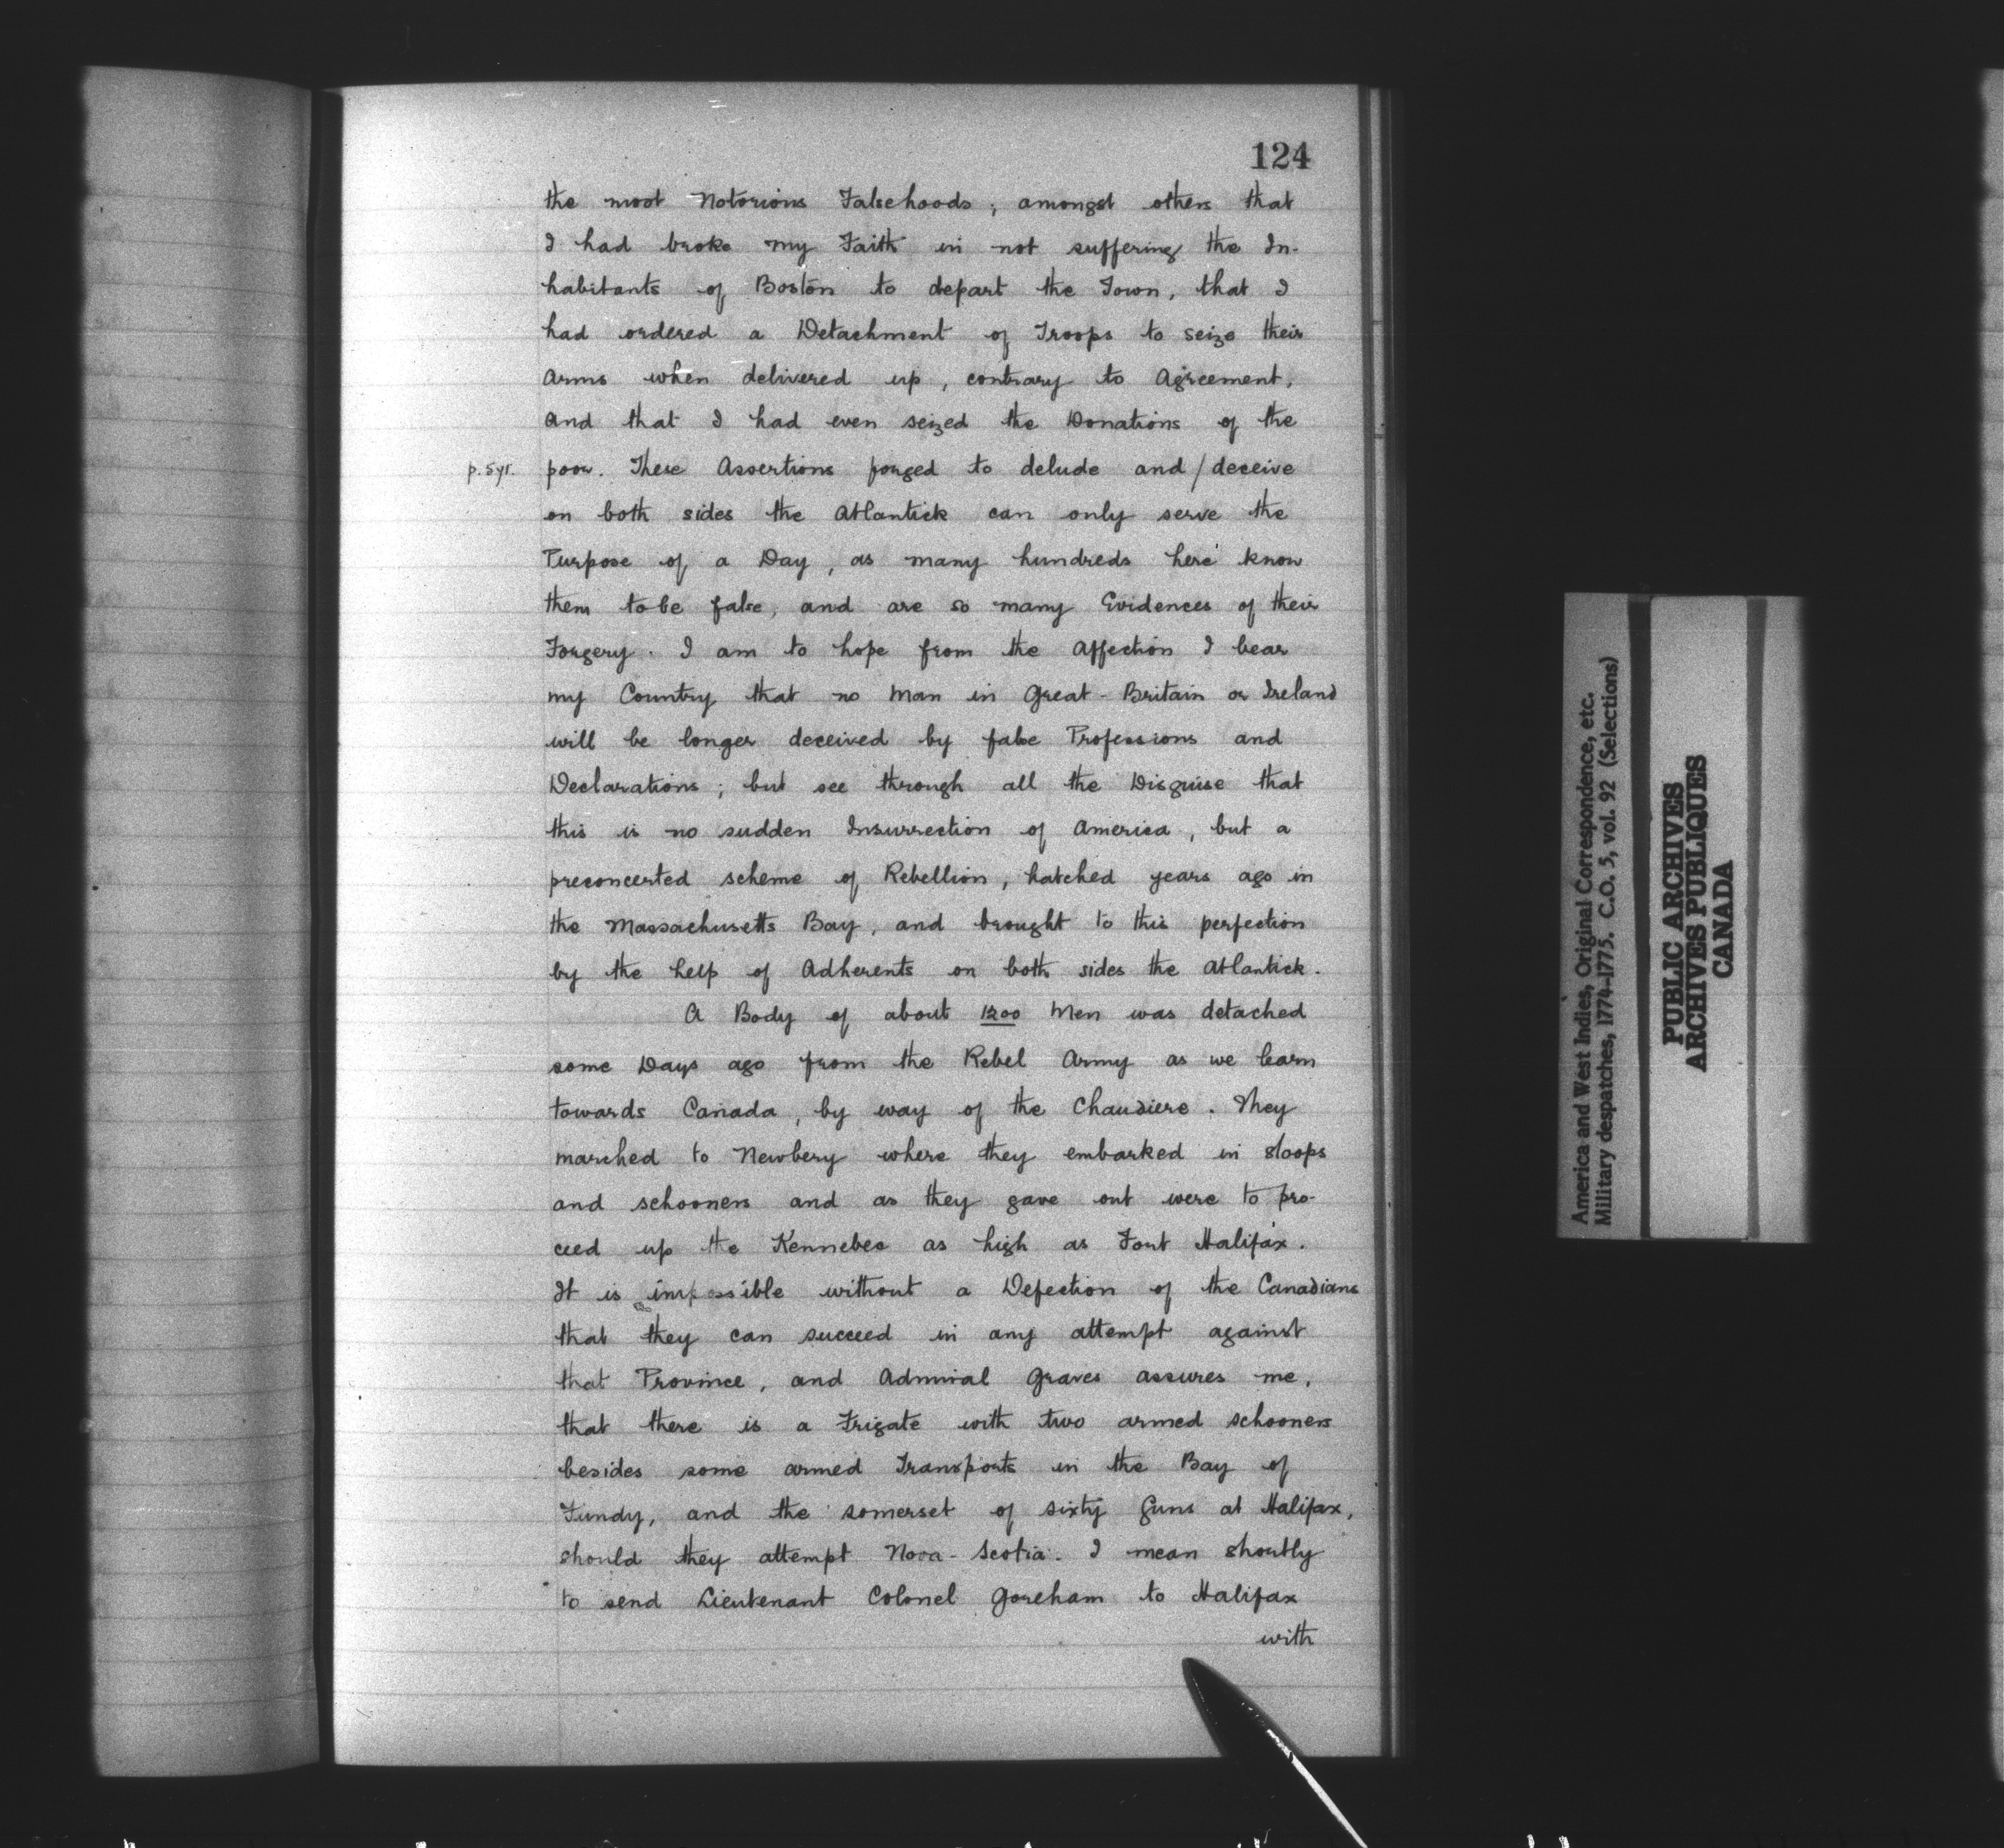 124
the most Notorious Falsehoods; amongst others that
I had broke my Faith in not suffering the In-
habitants of Boston to depart the Town, that I
had ordered a Detachment of Troops to seize their
Arms when delivered up, contrary to Agreement,
and that I had even seized the Donations of the
poor. These Assertions forged to delude and / deceive
on both sides the Atlantick can only serve the
Purpose of a Day, as many hundreds here know
them to be false, and are so many Evidences of their
Forgery. I am to hope from the Affection I bear
my Country that no Man in Great-Britain or Ireland
will be longer deceived by false Professions and
Declarations; but see through all the Disguise that
this is no sudden Insurrection of America, but a
preconcerted scheme of Rebellion, hatched years ago in
the Massachusetts Bay, and brought to this perfection
by the help of Adherents on both sides the Atlantick.
A Body of about 1200 Men was detached
some Days ago from the Rebel Army as we learn
towards Canada, by way of the Chaudiere. They
marched to Newbery where they embarked in sloops
and schooners and as they gave out were to pro-
ceed up the Kennebec as high as Fort Halifax.
It is impossible without a Defection of the Canadians
that they can succeed in any attempt against
that Province, and Admiral Graves assures me,
that there is a Frigate with two armed schooners
besides some armed Transports in the Bay of
Fundy, and the Somerset of sixty Guns at Halifax,
should they attempt Nova-Scotia. I mean shortly
to send Lieutenant Colonel Goreham to Halifax
with
America and West Indies, Original Correspondence, etc.
Military despatches, 1774-1775. C.O. 5, vol. 92 (Selections)
PUBLIC ARCHIVES
ARCHIVES PUBLIQUES
CANADA